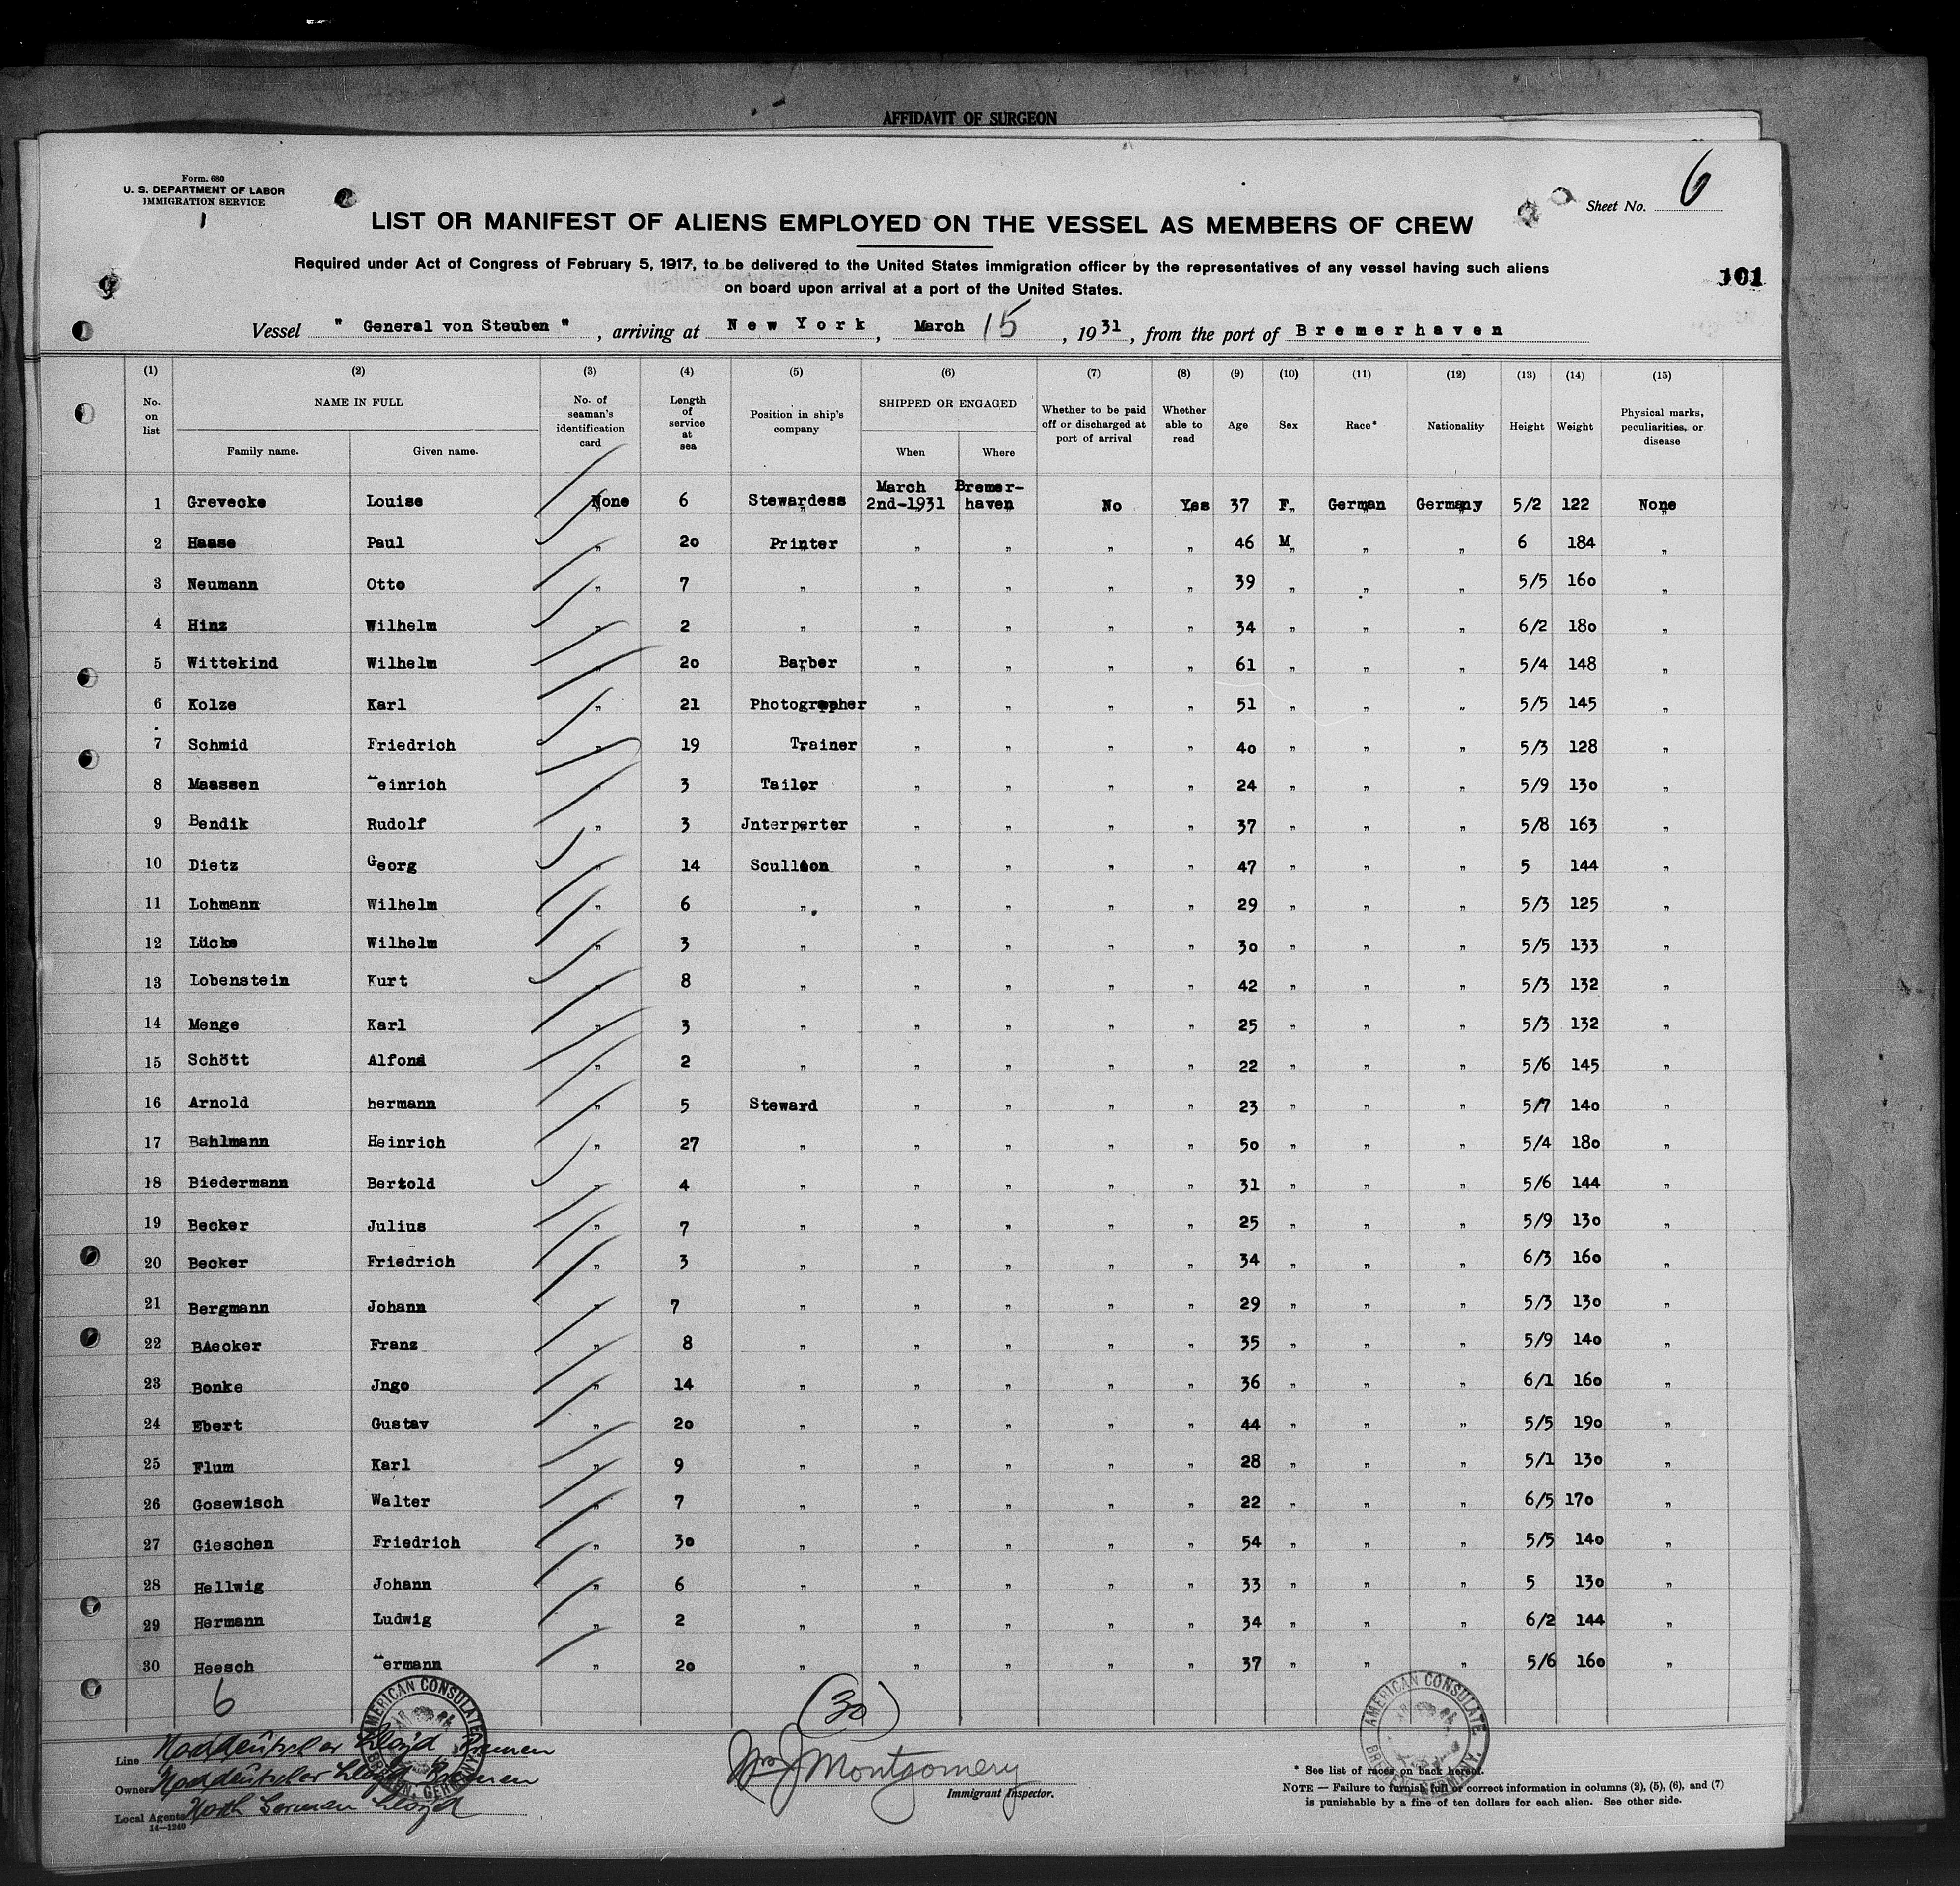 AFFIDAVIT OF SURGEON
Form. 680
U. S. DEPARTMENT OF LABOR
IMMIGRATION SERVICE
1
Sheet No. 6
LIST OR MANIFEST OF ALIENS EMPLOYED ON THE VESSEL AS MEMBERS OF CREW
Required under Act of Congress of February 5, 1917, to be delivered to the United States immigration officer by the representatives of any vessel having such aliens
on board upon arrival at a port of the United States.
101
Vessel " General von Steuben " , arriving at New York , March 15 , 1931 , from the port of Bremerhaven
(1) (2) (3) (4) (5) (6) (7) (8) (9) (10) (11) (12) (13) (14) (15)
No. on list NAME IN FULL Family name. Given name. No. of seaman's identification card Length of service at sea Position in ship's company SHIPPED OR ENGAGED When Where Whether to be paid off or discharged at port of arrival Whether able to read Age Sex Race* Nationality Height Weight Physical marks, peculiarities, or disease
1 Grevecke Louise None 6 Stewardess March 2nd-1931 Bremer-haven No Yes 37 F German Germany 5/2 122 None
2 Haase Paul " 20 Printer " " " " 46 M " " 6 184 "
3 Neumann Otto " 7 " " " " " 39 " " " 5/5 160 "
4 Hinz Wilhelm " 2 " " " " " 34 " " " 6/2 180 "
5 Wittekind Wilhelm " 20 Barber " " " " 61 " " " 5/4 148 "
6 Kolze Karl " 21 Photographer " " " " 51 " " " 5/5 145 "
7 Schmid Friedrich " 19 Trainer " " " " 40 " " " 5/3 128 "
8 Maassen Heinrich " 3 Tailor " " " " 24 " " " 5/9 130 "
9 Bendik Rudolf " 3 Jnterperter " " " " 37 " " " 5/8 163 "
10 Dietz Georg " 14 Scullion " " " " 47 " " " 5 144 "
11 Lohmann Wilhelm " 6 " " " " " 29 " " " 5/3 125 "
12 Lücke Wilhelm " 3 " " " " " 30 " " " 5/5 133 "
13 Lobenstein Kurt " 8 " " " " " 42 " " " 5/3 132 "
14 Menge Karl " 3 " " " " " 25 " " " 5/3 132 "
15 Schött Alfond " 2 " " " " " 22 " " " 5/6 145 "
16 Arnold hermann " 5 Steward " " " " 23 " " " 5/7 140 "
17 Bahlmann Heinrich " 27 " " " " " 50 " " " 5/4 180 "
18 Biedermann Bertold " 4 " " " " " 31 " " " 5/6 144 "
19 Becker Julius " 7 " " " " " 25 " " " 5/9 130 "
20 Becker Friedrich " 3 " " " " " 34 " " " 6/3 160 "
21 Bergmann Johann " 7 " " " " " 29 " " " 5/3 130 "
22 BAecker Franz " 8 " " " " " 35 " " " 5/9 140 "
23 Bonke Jngo " 14 " " " " " 36 " " " 6/1 160 "
24 Ebert Gustav " 20 " " " " " 44 " " " 5/5 190 "
25 Flum Karl " 9 " " " " " 28 " " " 5/1 130 "
26 Gosewisch Walter " 7 " " " " " 22 " " " 6/5 170 "
27 Gieschen Friedrich " 30 " " " " " 54 " " " 5/5 140 "
28 Hellwig Johann " 6 " " " " " 33 " " " 5 130 "
29 Hermann Ludwig " 2 " " " " " 34 " " " 6/2 144 "
30 Heesch Hermann " 20 " " " " " 37 " " " 5/6 160 "
6
(30)
AMERICAN CONSULATE BREMEN, GERMANY
AMERICAN CONSULATE BREMEN, GERMANY
Line Norddeutscher Lloyd Bremen
Owners Norddeutscher Lloyd Bremen
Local Agents North German Lloyd
14—1240
Wm J Montgomery
Immigrant Inspector.
* See list of races on back hereof.
NOTE — Failure to furnish full or correct information in columns (2), (5), (6), and (7)
is punishable by a fine of ten dollars for each alien. See other side.